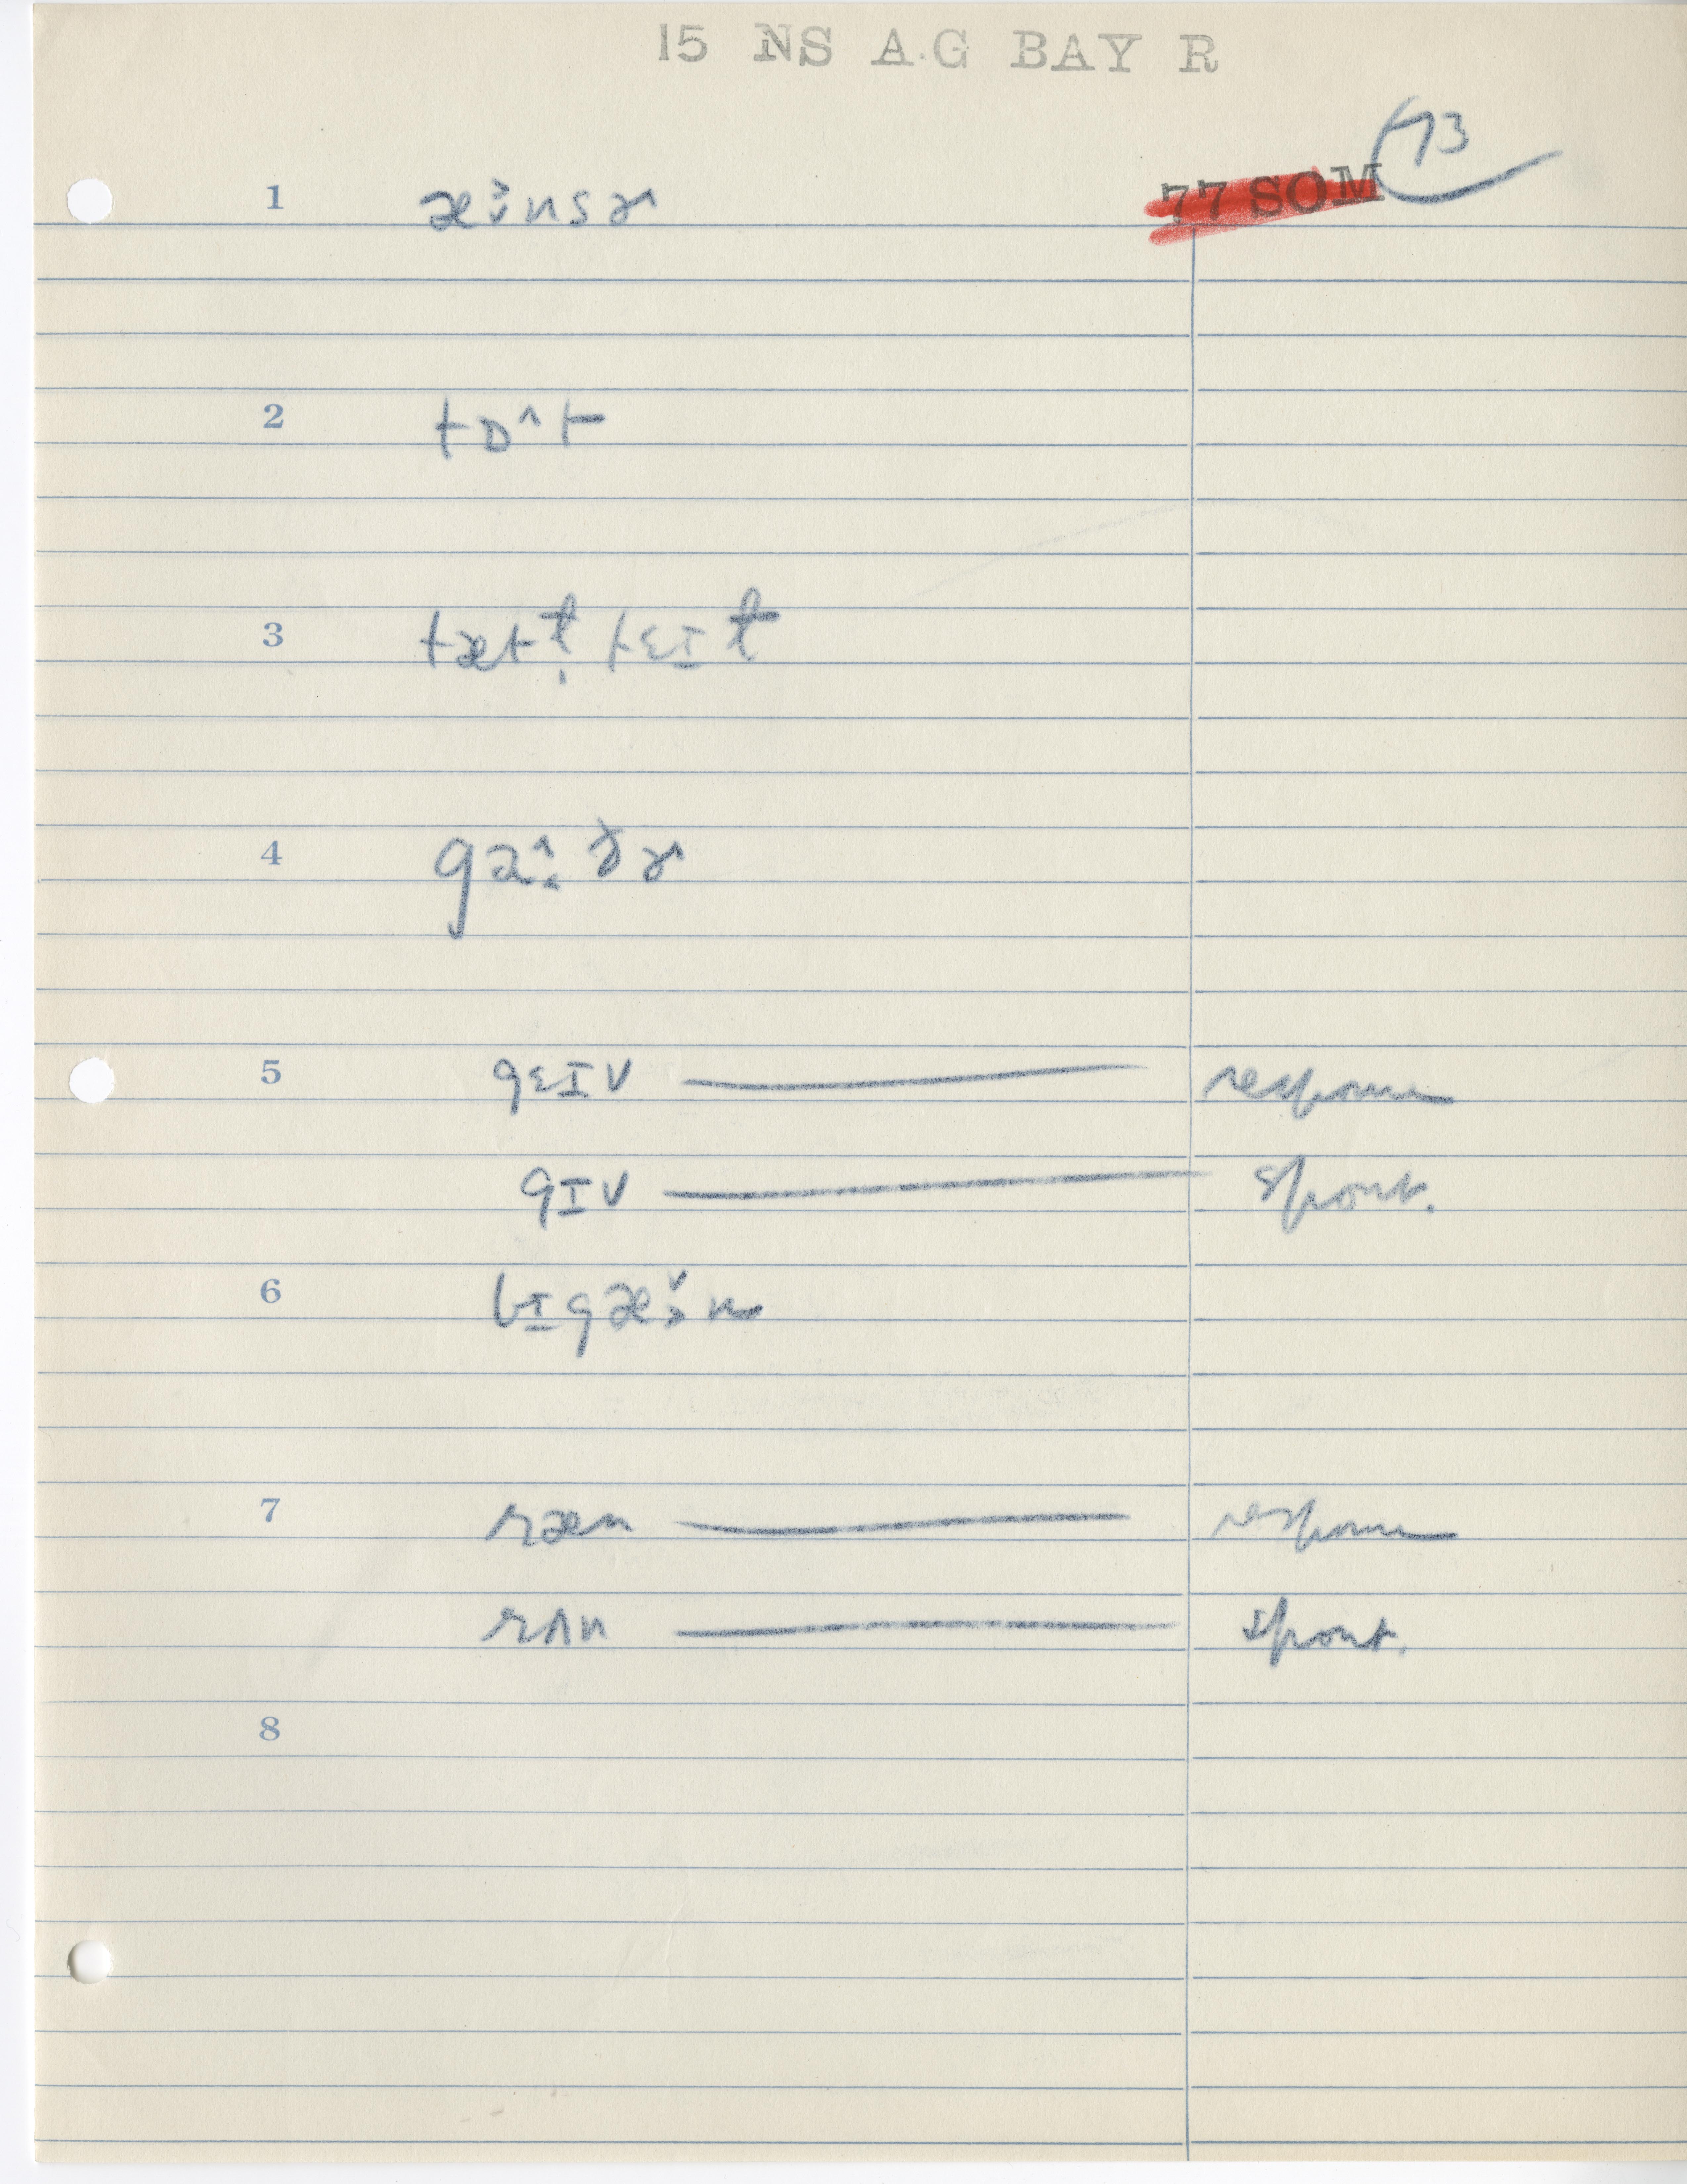 15 NS A.G BAY R
73
77 SOM
1 æ̬ˑnsɚ
2 tɒ^t
3 tætt̩ tɛɪt
4 ga^ːðɚ
5 gɛɪv — response
gɪv — spont.
6 bɪgæˇːn
7 ræn — response
rʌn — spont.
8